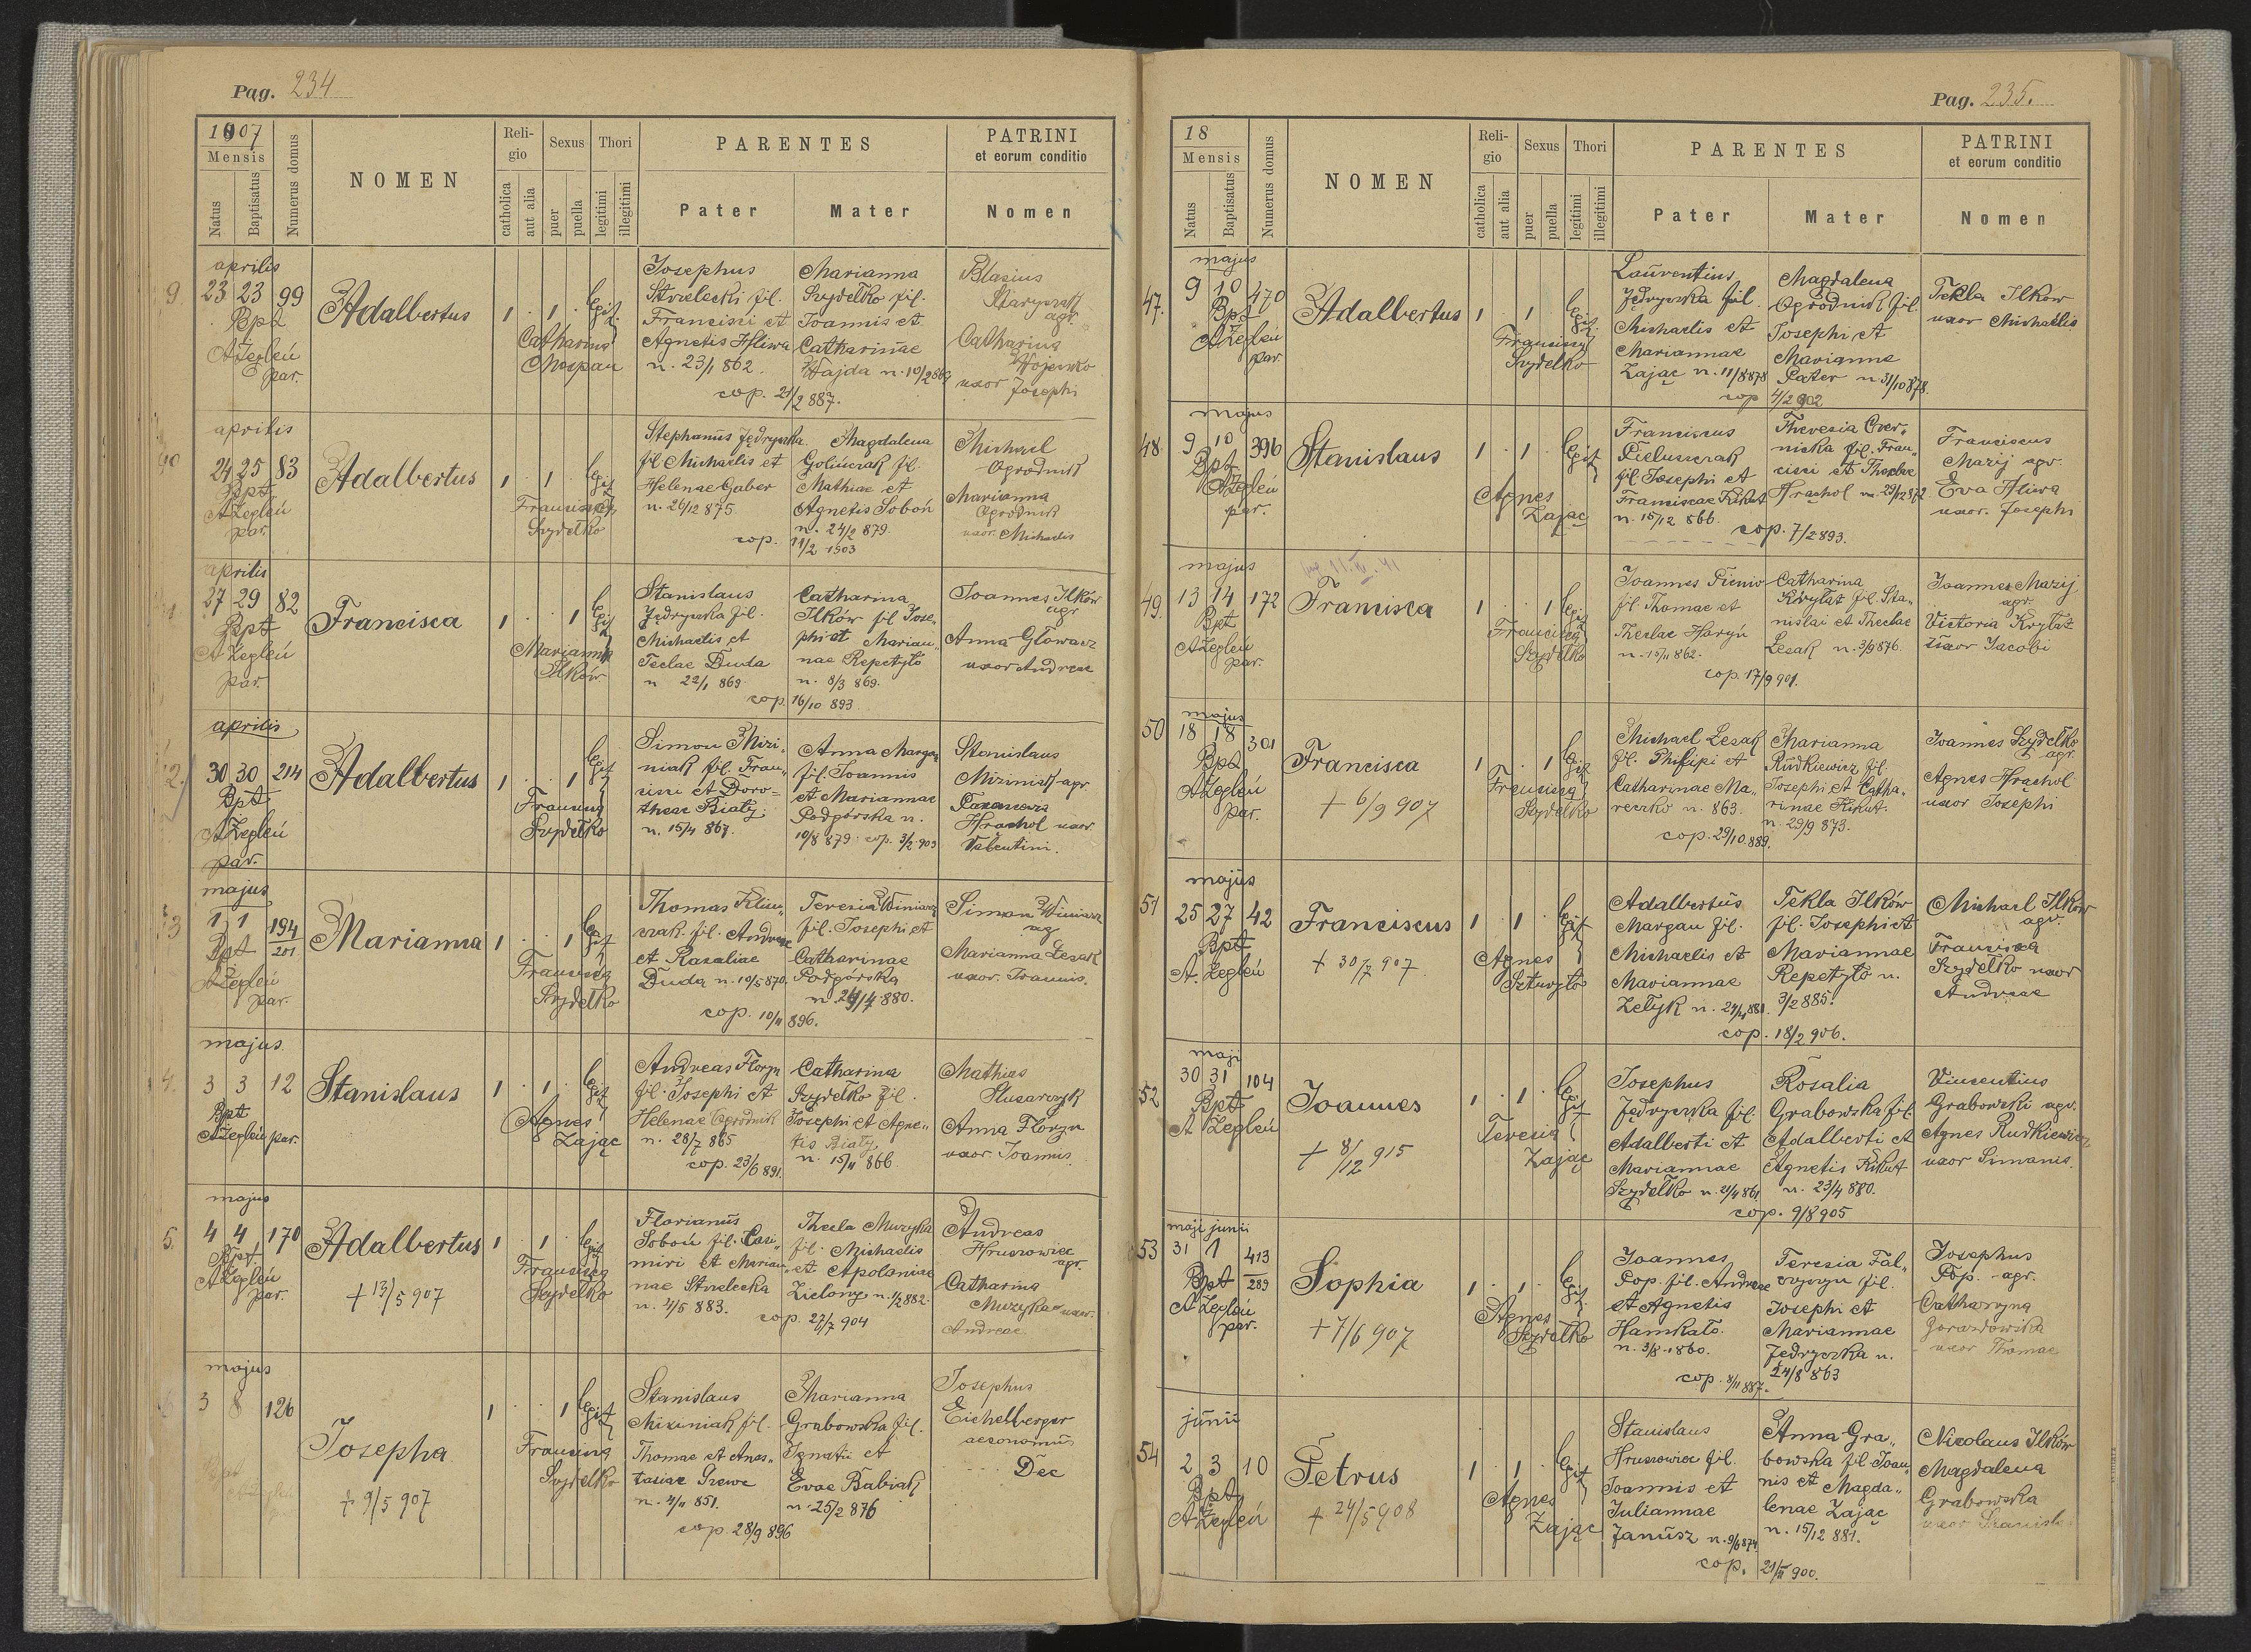 Pag. 234
1907
Mensis
Natus
Baptisatus
Numerus domus
NOMEN
Religio
catholica
aut alia
Sexus
puer
puella
Thori
legitimi
illegitimi
PARENTES
Pater
Mater
PATRINI
et eorum conditio
Nomen
aprilis
23 23 99
Bpt
A Żegleń
par.
Adalbertus
1 1 legit.
Catharina
Josephus
Strzelecki fil.
Francisci et
Agnetis Hliwa
n. 23/1 862.
Marianna
Szydełko fil.
Joannis et
Catharinae
Hajda n. 10/2 869
cop. 21/2 887.
Blasius
agr.
Catharina
uxor Josephi
aprilis
24 25 83
Bpt
A Żegleń
par.
Adalbertus
1 1 legit
Francisca
Szydełko
Stephanus Jędryczka
fil Michaelis et
Helenae Gaber
n. 26/12 875.
Magdalena
Golińczak fil.
Mathiae et
Agnetis Soboń
n. 24/2 879.
cop. 11/2 1903
Michael
Ogrodnik
Marianna
Ogrodnik
uxor Michaelis
aprilis
27 29 82
Bpt
A Żegleń
par.
Francisca
1 1 legit
Marianna
Ilków
Stanislaus
Jędryczka fil.
Michaelis et
Teclae Duda
n 22/1 869
Catharina
Ilków fil Jose,
phi et Marian,,
nae Repetyło
n. 8/3 869.
cop. 16/10 893
Joannes Ilków
agr
Anna Głowacz
uxor Andreae
aprilis
30 30 214
Bpt
A Żegleń
par.
Adalbertus
1 1 legit
Francisca
Szydełko
Simon Mizi,,
niak fil. Fran,,
cisci et Doro=
theae Biały
n. 15/4 867.
Anna Margan
fil. Joannis
et Mariannae
Podgórska n.
10/8 879 cop. 3/2 903
Stanislaus
Miziniak agr.
Hrachol uxor.
Valentini.
majus
1 1 194
201
Bpt
A Żegleń
par.
Marianna
1 1 legit
Francisca
Szydełko
Thomas Klim,,
czak fil. Andreae
et Rosaliae
Duda n. 10/5 870.
Teresia Winiarz
fil. Josephi et
Catharinae
Podgórska
n. 24/4 880.
cop. 10/11 896.
Simon Winiarz
ag
Marianna Lesak
uxor. Joannis.
majus.
3 3 12
Bpt
A Żegleń par.
Stanislaus
1 1 legit
Agnes
Zając
Andreas Florzn
fil. Josephi et
Helenae Ogrodnik
n. 28/7 865
Catharina
Szydełko fil.
Josephi et Agne,,
tis Biały
n. 15/11 866.
cop. 23/6 891.
Mathias
Slusarczyk
Anna Florzn
uxor. Joannis.
majus
4 4 170
Bpt
A Żegleń
par.
Adalbertus
+ 13/5 907
1 1 legit
Francisca
Szydełko
Florianus
Soboń fil. Casi,,
miri et Marian,,
nae Strzelecka
n. 4/5 883.
Thecla Muzyka
fil. Michaelis
et Apoloniae
Zielony n. 1/2 882.
cop. 27/7 904
Andreas
Hruszowiec
agr.
Catharina
Muzyka uxor.
Andreae
majus
3 8 126
Josepha
+ 9/5 907
1 1 legit
Francisca
Szydełko
Stanislaus
Miziniak fil.
Thomae et Anas,,
tasiae Szewc
n. 4/11 851.
Marianna
Grabowska fil.
Ignatii et
Evae Babiak
n. 25/2 876
cop. 28/9 896
Josephus
Eichelberger
aeconomus
Dec
Pag. 235.
18
Mensis
Natus
Baptisatus
Numerus domus
NOMEN
Religio
catholica
aut alia
Sexus
puer
puella
Thori
legitimi
illegitimi
PARENTES
Pater
Mater
PATRINI
et eorum conditio
Nomen
47.
majus
9 10 470
Bpt
A Żegleń
par.
Adalbertus
1 1 legit.
Francisca
Szydełko
Laurentius
Jędryczka fil.
Michaelis et
Mariannae
Zając n. 11/8 878
Magdalena
Ogrodnik fil.
Josephi et
Marianne
Pater n. 31/10 878.
cop 4/2 902
Tekla Ilków
uxor Michaelis
48.
majus
9 10 396
Bpt
A Żegleń
par.
Stanislaus
1 1 legit
Agnes
Zając
Franciscus
Pieluszczak
fil. Josephi et
Franciscae Kikut
n. 15/12 866.
Theresia Czer,,
nicka fil. Fran,,
cisci et Theclae
Hrachol n. 29/12 872
cop. 7/2 893.
Franciscus
Mazij agr.
Eva Hliwa
uxor. Josephi
49.
majus
13 14 172
Bpt
A Żegleń
par.
Francisca
1 1 legit
Francisca
Szydełko
Joannes Pienio
fil. Thomae et
Theclae Haryń
n. 15/11 862.
Catharina
Kryłat fil. Sta,,
nislai et Theclae
Lesak n. 3/9 876.
cop. 17/9 901.
Joannes Mazij
agr.
Victoria Kryłat
uxor Jacobi
50
majus
18 18 301
Bpt
A Żegleń
par.
Francisca
+ 6/9 907
1 1 legit
Francisca
Szydełko
Michael Lesak
fil. Philipi et
Catharinae Ma,,
reczko n. 863.
Marianna
Rudkiewicz fil.
Josephi et Catha,,
rinae Kikut.
n. 29/9 873.
cop. 29/10 889.
Joannes Szydełko
agr.
Agnes Hrachol
uxor Josephi
51
majus
25 27 42
Bpt
A. Żegleń
Franciscus
+ 30/7 907.
1 1 legit
Agnes
Szturyło
Adalbertus
Margan fil.
Michaelis et
Mariannae
Zełyk n. 24/4 881.
Tekla Ilków
fil. Josephi et
Mariannae
Repetyło n.
3/2 885.
cop. 18/2 906.
Michael Ilków
agr.
Francisca
Szydełko uxor
Andreae
52
maji
30 31 104
Bpt
A Żegleń
Joannes
+ 8/12 915
1 1 legit
Teresia
Zając
Josephus
Jędryczka fil.
Adalberti et
Mariannae
Szydełko n. 21/4 861.
Rosalia
Grabowska fil.
Adalberti et
Agnetis Kikut
n. 23/4 880.
cop. 9/8 905
Vincentius
Grabowski agr.
Agnes Rudkiewicz
uxor Simonis.
53
maji junii
31 1 413
289
Bpt
A Żegleń
par.
Sophia
+ 7/6 907
1 1 legit.
Agnes
Szydełko
Joannes
Pop. fil. Andreae
et Agnetis
Hamkało.
n. 3/8 1860.
Teresia Fal,,
czyszyn fil.
Josephi et
Mariannae
Jędryczka n.
24/8 863
cop. 8/11 887.
Josephus
Pop. agr.
Catharyna
Gorazdowska
uxor Thomae
54
junii
2 3 10
Bpt
A Żegleń
Petrus
+ 24/5 908
1 1 legit
Agnes
Zając
Stanislaus
Hruszowiec fil.
Joannis et
Juliannae
Janusz n. 9/6 874.
Anna Gra,,
bowska fil Joan,,
nis et Magda,,
lenae Zając
n. 15/12 881.
cop. 21/II 900.
Nicolaus Ilków
Magdalena
Grabowska
uxor